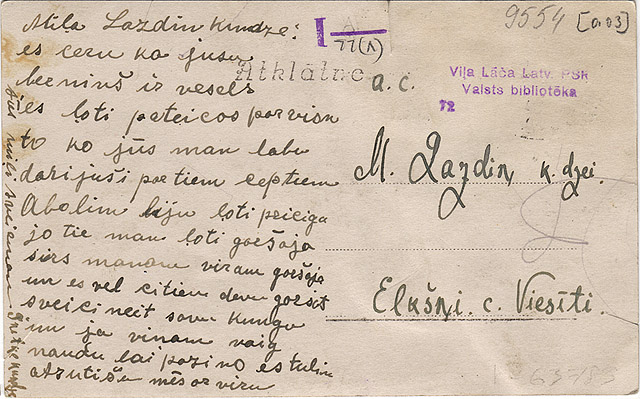 Mīļa Lazdiņ kundze!
es ceru ka jusu
berniņš ir vesels
es ļoti pateicos par visu
to ko jūs man labu
darijuši par tiem ceptiem
Aboliem biju loti priciga
jo tie man ļoti garšoja
sirs manam viram garšoja
un es vel citiem devu garšot
sveicineit savu kungu
un ja viņam vaig
naudu lai paziņo es tulin
atsutišu mēs ar viru
Atklātne
77(1)
9554 [a03]
Viļa Lāča Latv. PSR
Valsts bibliotēka
72
a. c.
M. Lazdiņ k. dzei.
Elkšņi. c. Viesīti.